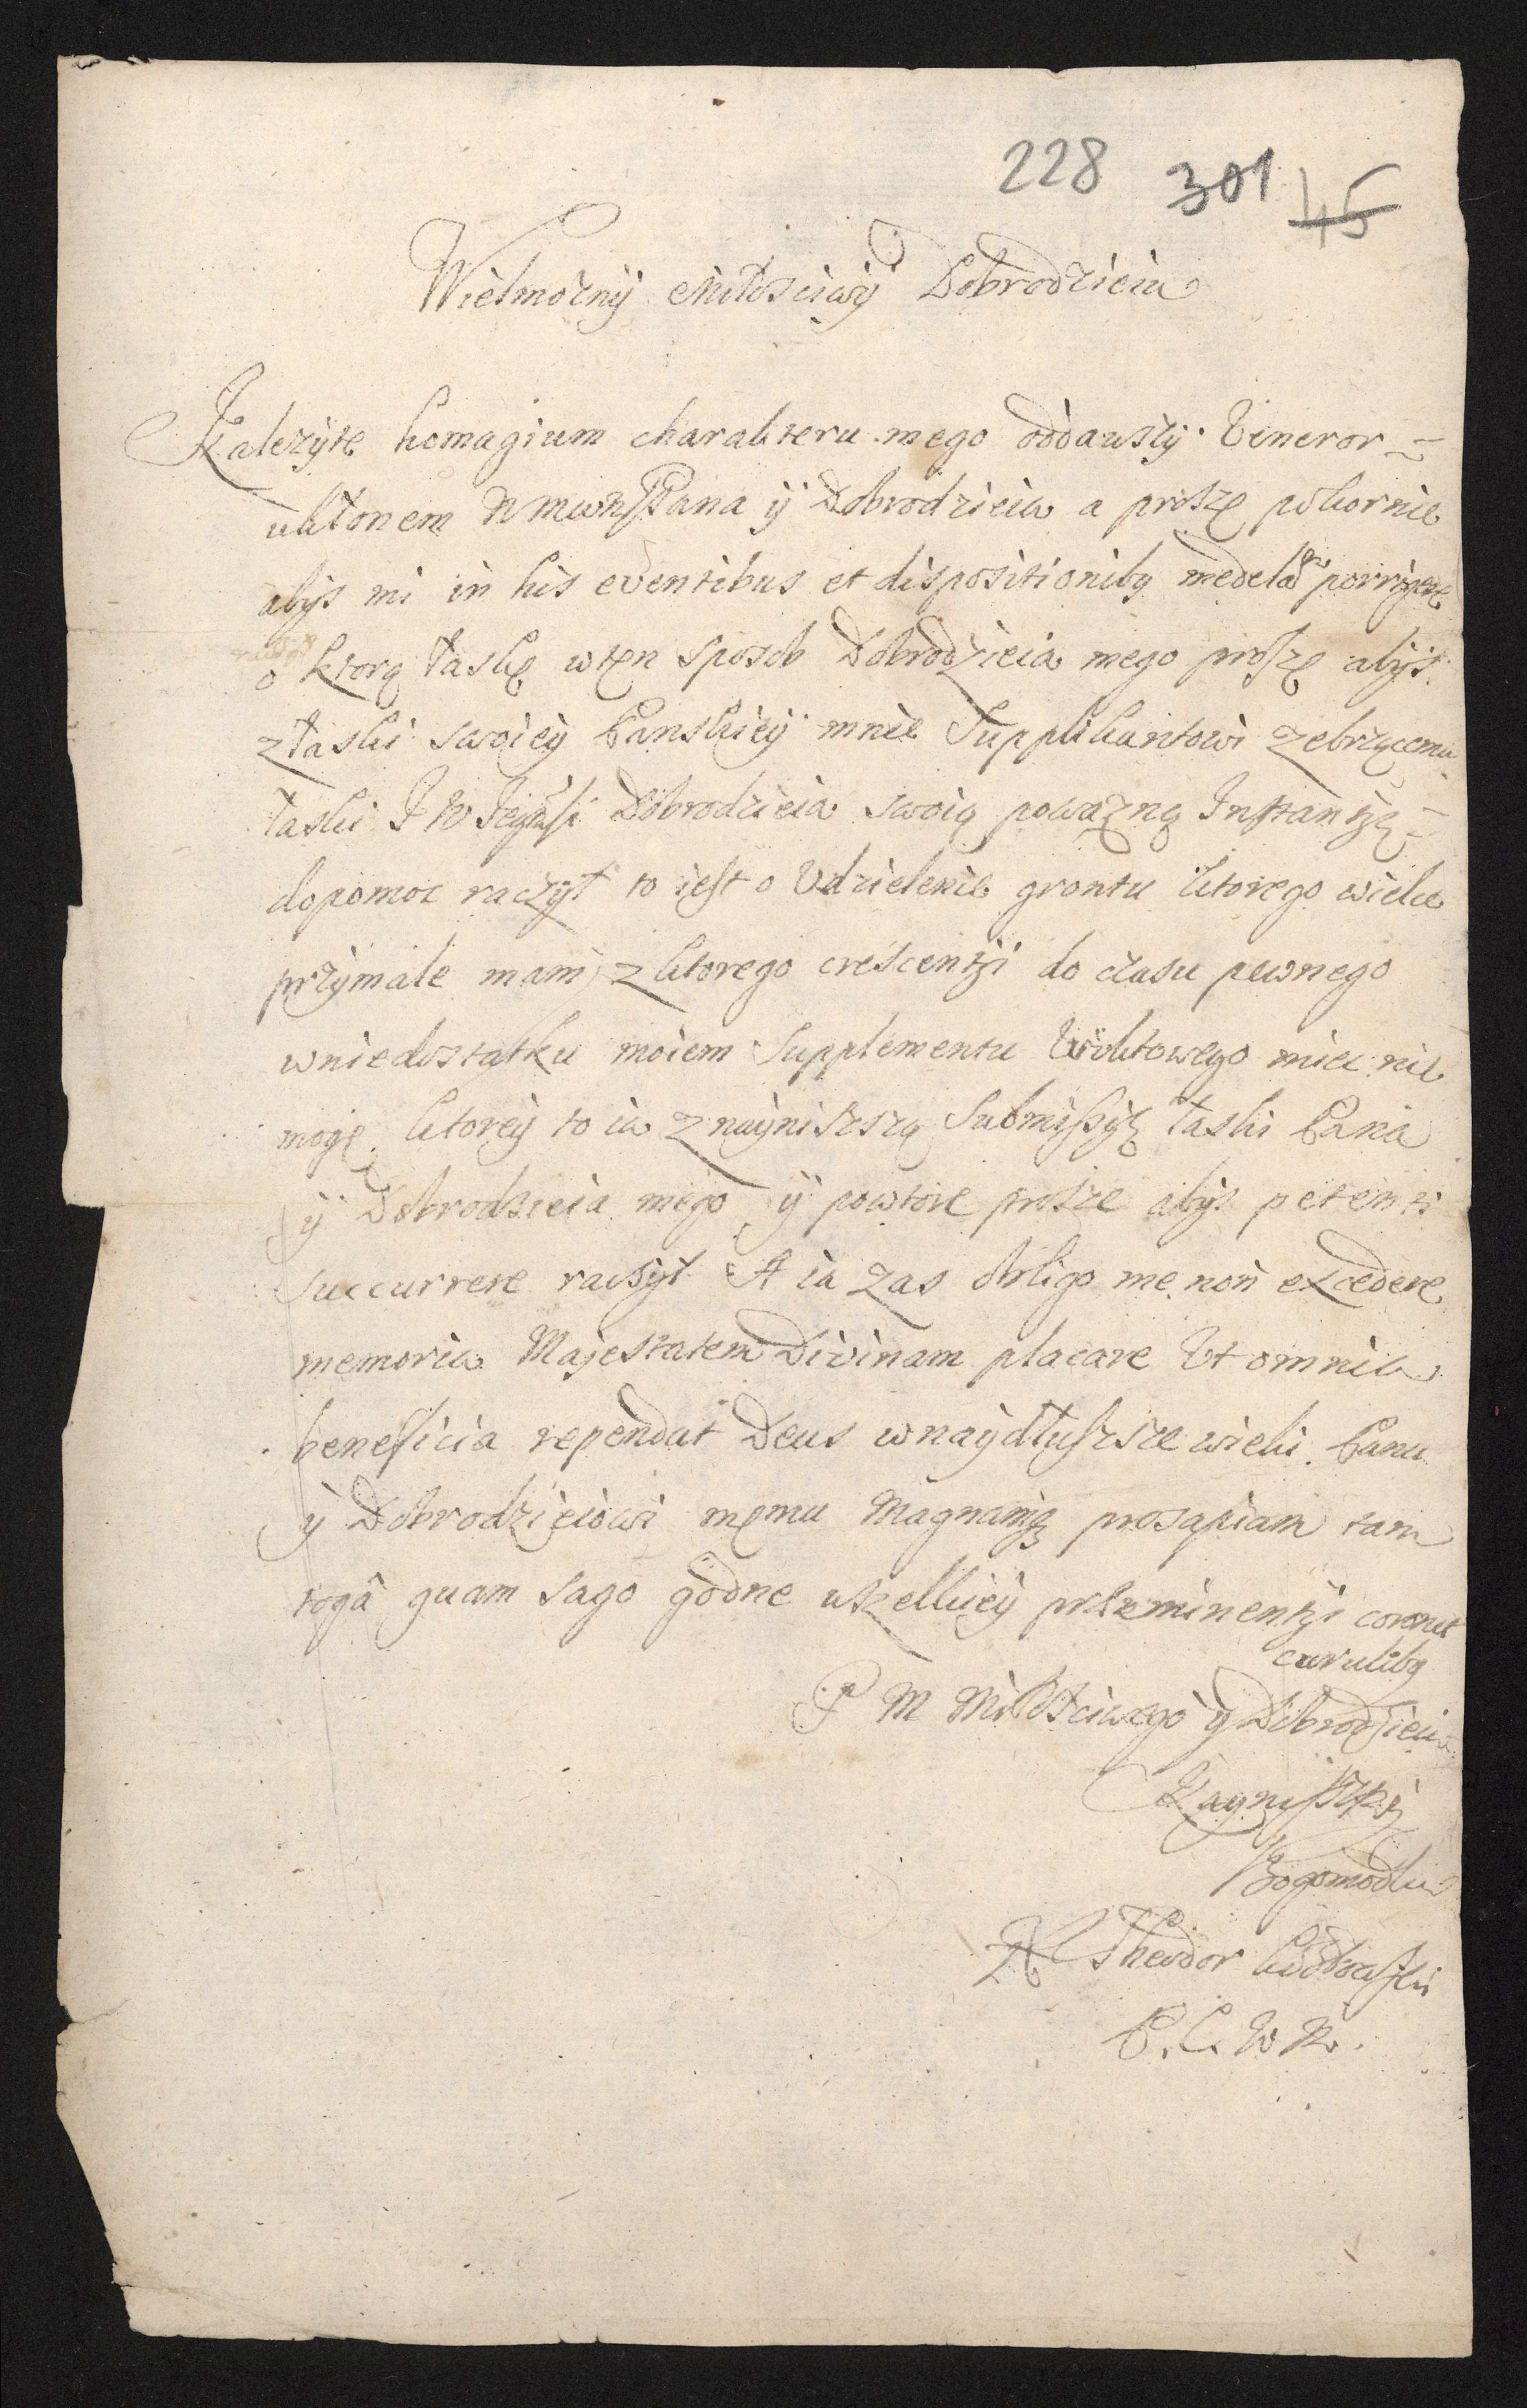 228 301 45
Wielmożnÿ Miłosciwÿ Dobrodzieiu
Należyte homagium charakteru mego oddawszÿ Veneror
ukłonem Pana ÿ Dobrodzieia a proszę pokornie
abÿs mi in his eventibus et dispositionibq medelam porrigere
o ktorą łaskę wten sposob Dobrodzieia mego proszę abÿs
złaski swoieÿ Panskieÿ mnie Supplikantowi zebrzącemu
łaski J W Dobrodzieia swoią powazną Instantÿę
dopomoc raczÿł to iest o Vdzielenie grontu ktorego wielce
przÿmale mam z ktorego crescentÿi do czasu pewnego
wniedostatku moiem Supplementu miec nie
mogę. ktoreÿ to ia z naÿniszszą Submissÿą łaski Pana
ÿ Dobrodzieia mego ÿ powtore prosze abÿs petenti
succurrere raczÿł. A ia zas obligo me non excedere
memoria Majestatem Divinam placare Vt omnia
beneficia rependat Deus wnaÿdłuszsze wieki Panu
ÿ Dobrodzieiowi memu Magnamq prosapiam tam
togâ quam sago godne wszelkieÿ præeminentÿi coronet
curulibq
P M Miłosciwego ÿ Dobrodzieia
Naÿniszszÿ
Bogomodlca
X Theodor
P. C. W R.